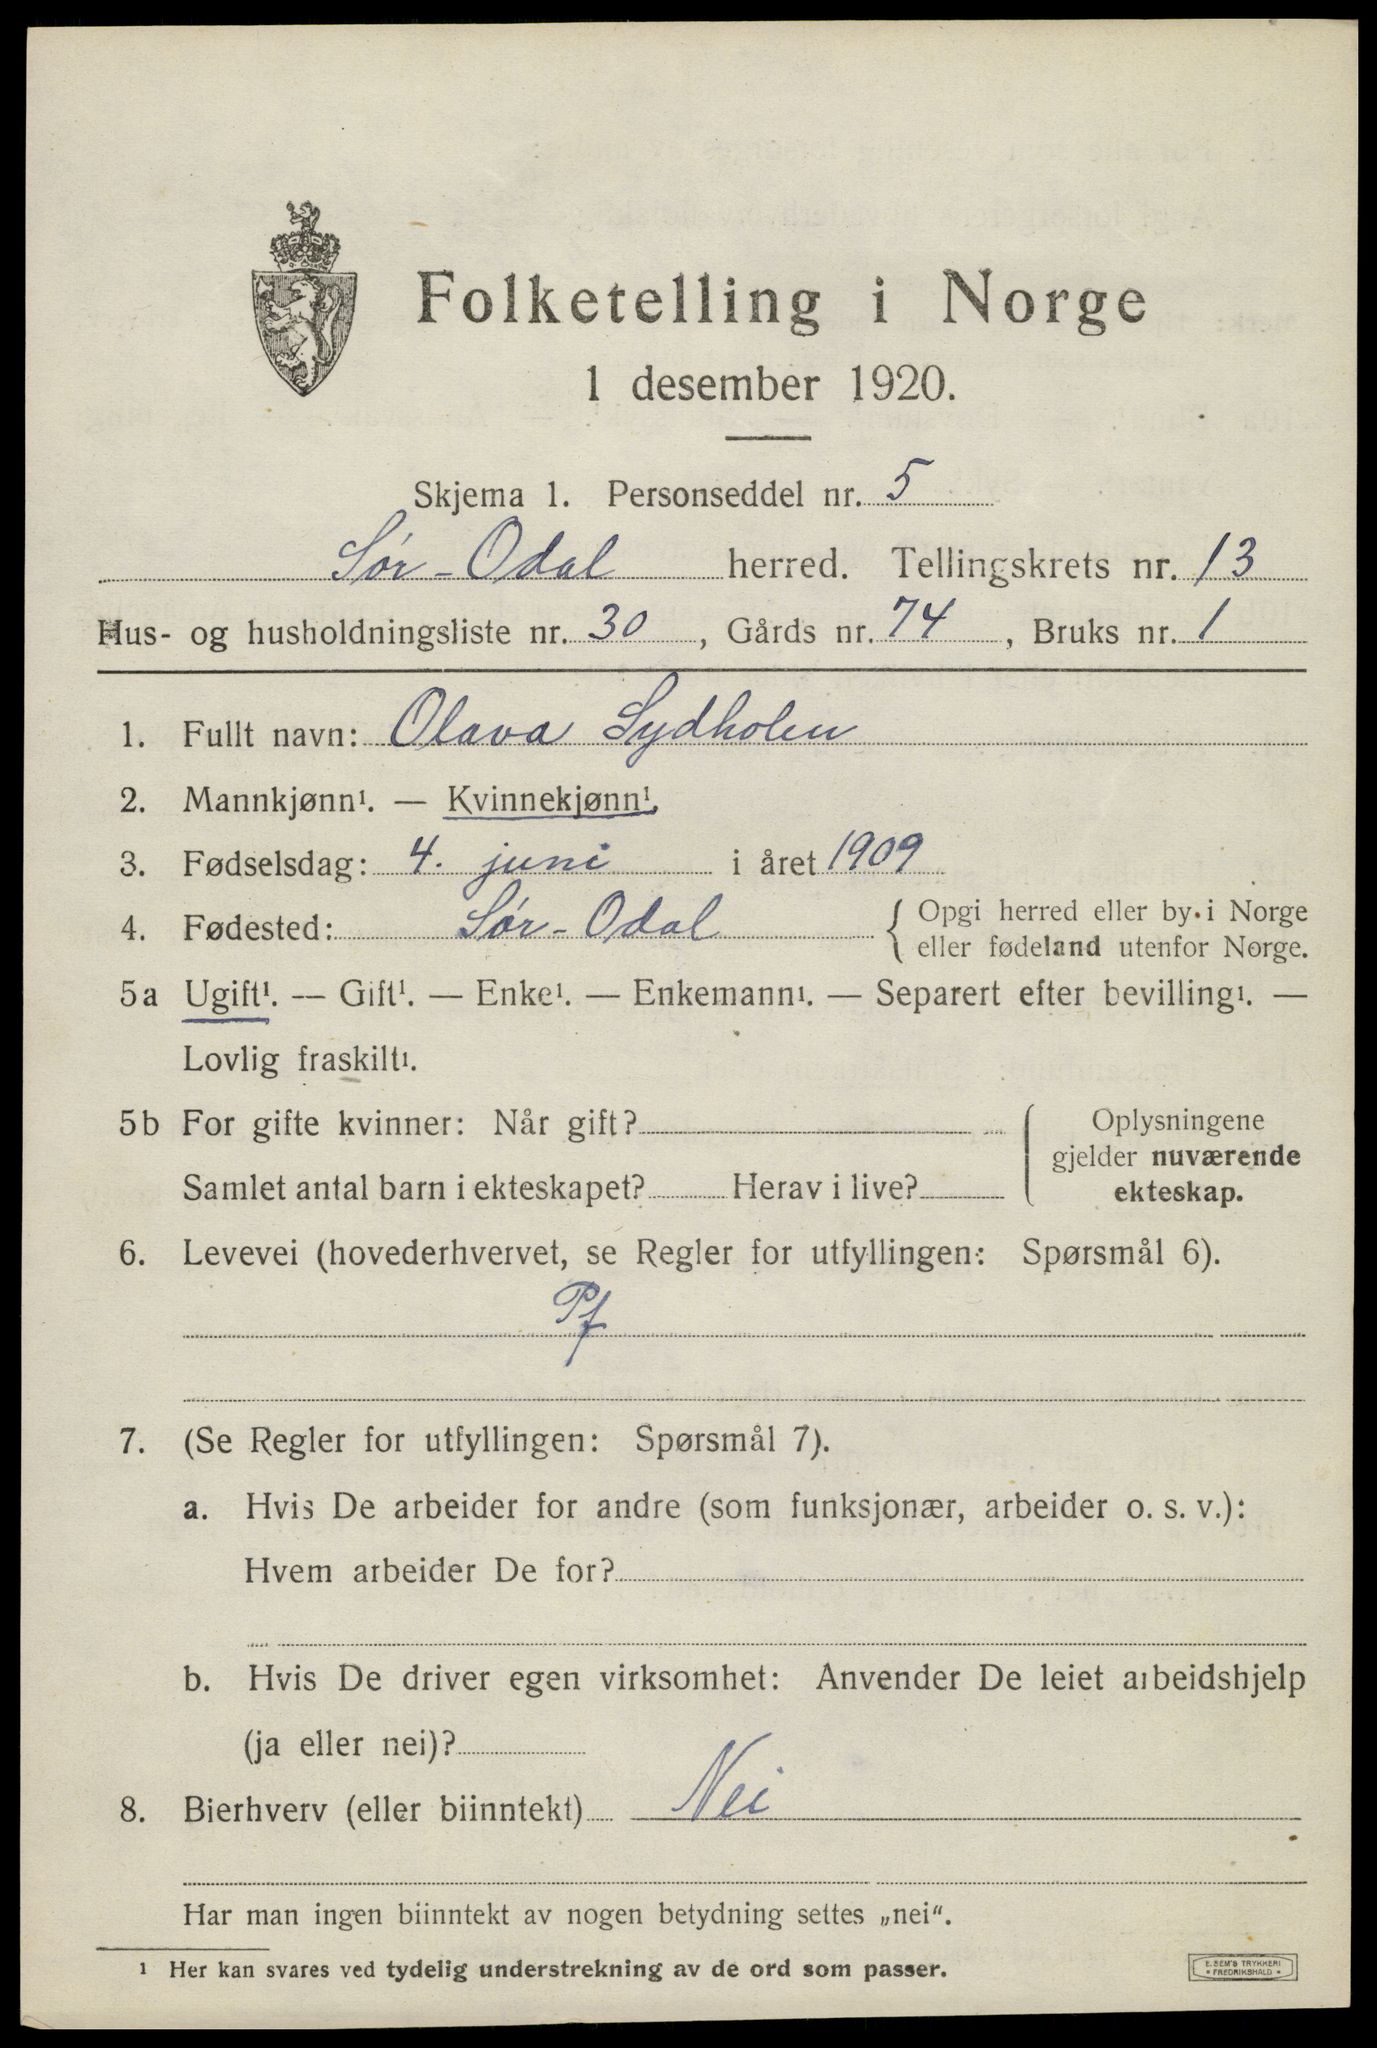 Folketelling i Norge
1 desember 1920.
Skjema 1. Personseddel nr. 5
Sør-Odal herred. Tellingskrets nr. 13
Hus- og husholdningsliste nr. 30, Gårds nr. 74, Bruks nr. 1
1. Fullt navn: Olava Sydholen
2. Mannkjønn¹. — Kvinnekjønn¹.
3. Fødselsdag: 4. juni i året 1909
4. Fødested: Sør-Odal { Opgi herred eller by i Norge
eller fødeland utenfor Norge.
5a Ugift¹. — Gift¹. — Enke¹. — Enkemann¹. — Separert efter bevilling¹. —
Lovlig fraskilt¹.
5b For gifte kvinner: Når gift?
Samlet antal barn i ekteskapet? Herav i live?
Oplysningene
gjelder nuværende
ekteskap.
6. Levevei (hovederhvervet, se Regler for utfyllingen: Spørsmål 6).
Pf
7. (Se Regler for utfyllingen: Spørsmål 7).
a. Hvis De arbeider for andre (som funksjonær, arbeider o. s. v.):
Hvem arbeider De for?
b. Hvis De driver egen virksomhet: Anvender De leiet arbeidshjelp
(ja eller nei)?
8. Bierhverv (eller biinntekt) Nei
Har man ingen biinntekt av nogen betydning settes „nei“.
¹ Her kan svares ved tydelig understrekning av de ord som passer.
E. SEM'S TRYKKERI
• FREDRIKSHALD •